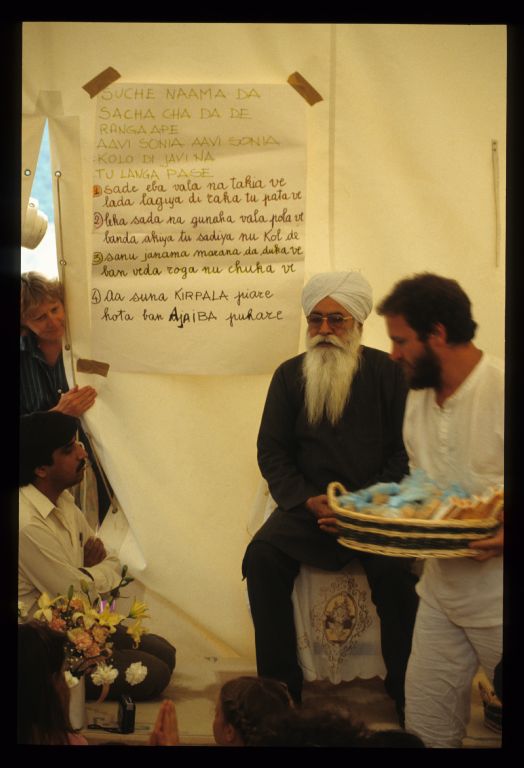 SUCHE NAAMA DA
SACHA CHA DA DE
RANGA APE
AAVI SONIA AAVI SONIA
KOLO DI JAVI NA
TU LANGA PASE
1 sade eba vala na takia ve
lada lagiya di raka tu pata ve
2 leka sada na gunaha vala pola ve
banda akiya tu sadiya nu kol de
3 sanu janama marana da duka ve
ban veda roga nu chuka ve
4) Aa suna KIRPALA piare
kota ban AJAIBA pukare